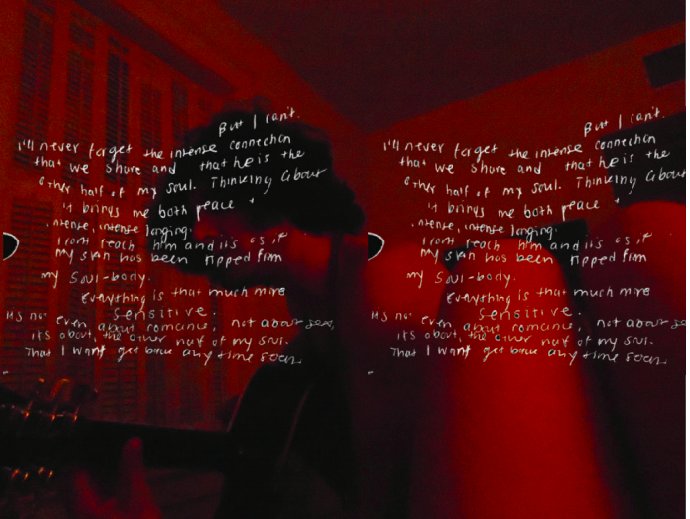 But I can't.
I'll never forget the intense connection
that we share and that he is the
other half of my soul. Thinking about
it brings me both peace +
intense, intense longing.
I can't reach him and it's as if
My skin has been ripped from
my Soul-body.
Everything is that much more
Sensitive.
It's not even about romance, not about sex,
it's about, the other half of my soul.
That I won't get back any time soon
But I can't.
I'll never forget the intense connection
that we share and that he is the
other half of my soul. Thinking about
it brings me both peace +
intense, intense longing.
I can't reach him and it's as if
My skin has been ripped from
my Soul-body.
Everything is that much more
Sensitive.
It's not even about romance, not about se
it's about, the other half of my soul.
That I won't get back any time soon